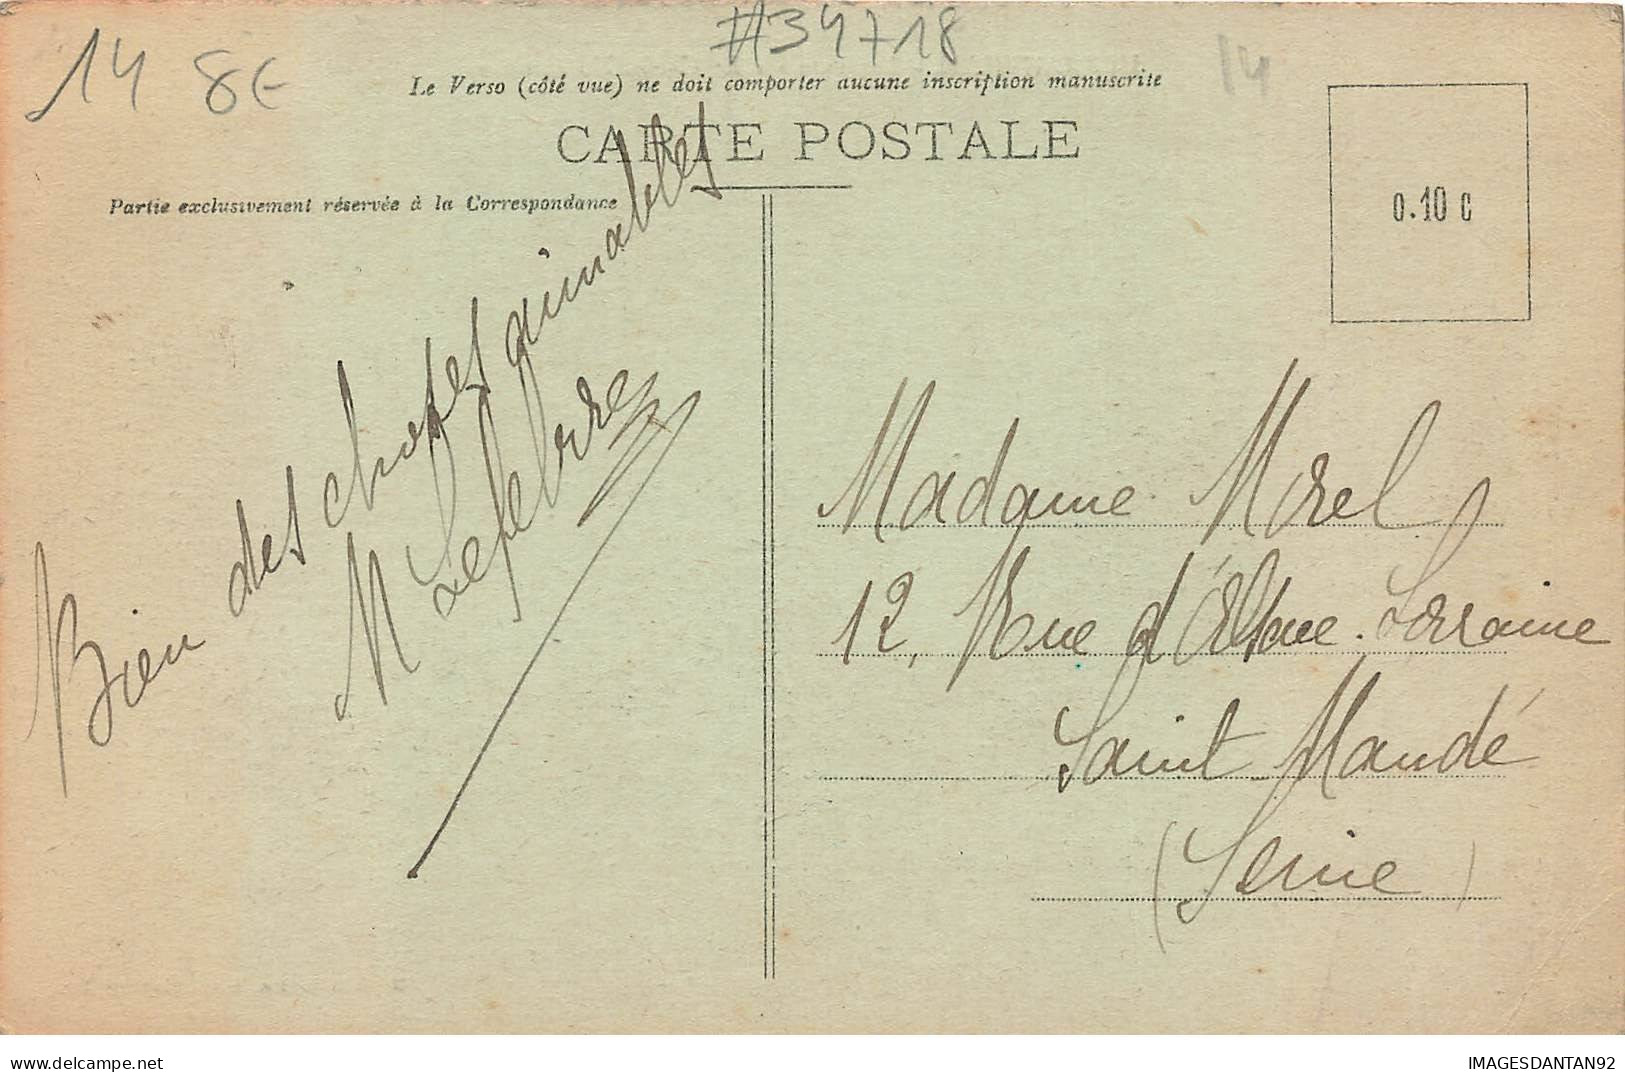 14 8€
#34718
14
Le Verso (côté vue) ne doit comporter aucune inscription manuscrite
CARTE POSTALE
Partie exclusivement réservée à la Correspondance
0.10 C
Bien des choses aimables
M Lefebvre
Madame Morel
12, Rue d'Alsace-Lorraine
Saint Mandé
(Seine)
www.delcampe.net
IMAGESDANTAN92